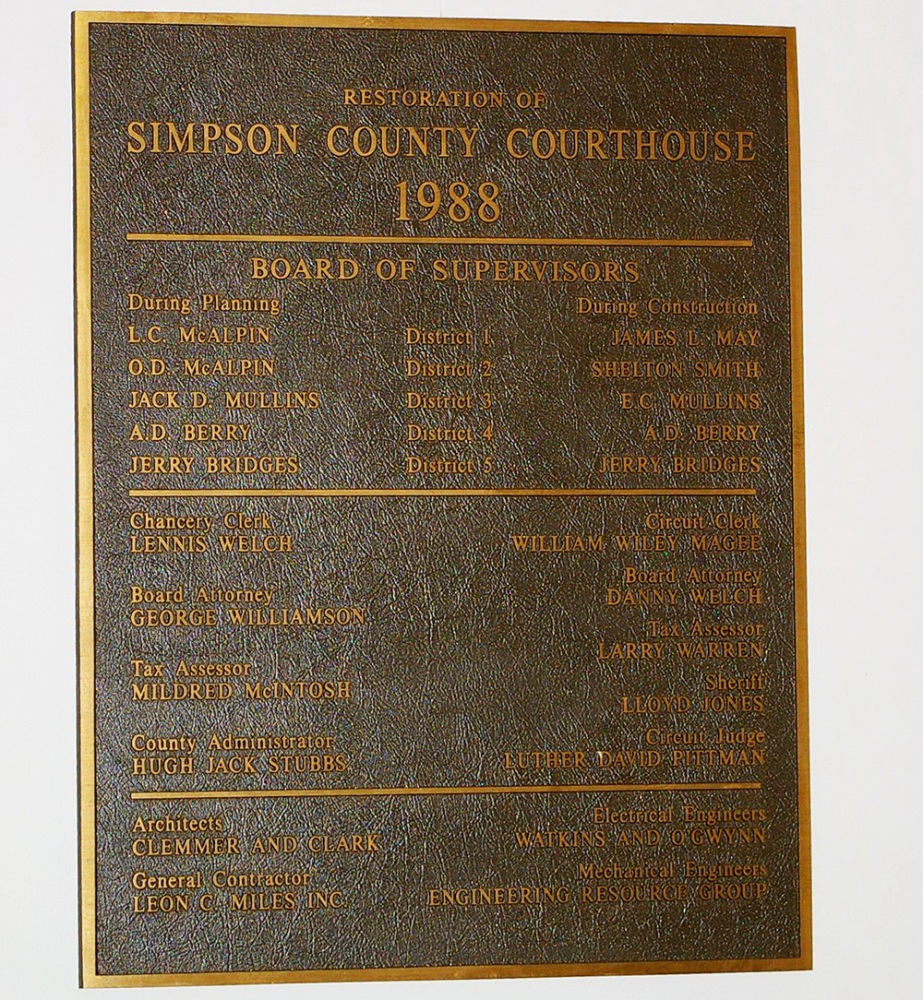 RESTORATION OF
SIMPSON COUNTY COURTHOUSE
1988
BOARD OF SUPERVISORS
During Planning During Construction
L.C. McALPIN District 1 JAMES L. MAY
O.D. McALPIN District 2 SHELTON SMITH
JACK D. MULLINS District 3 E.C. MULLINS
A.D. BERRY District 4 A.D. BERRY
JERRY BRIDGES District 5 JERRY BRIDGES
Chancery Clerk
LENNIS WELCH
Board Attorney
GEORGE WILLIAMSON
Tax Assessor
MILDRED McINTOSH
County Administrator
HUGH JACK STUBBS
Circuit Clerk
WILLIAM WILEY MAGEE
Board Attorney
DANNY WELCH
Tax Assessor
LARRY WARREN
Sheriff
LLOYD JONES
Circuit Judge
LUTHER DAVID PITTMAN
Architects
CLEMMER AND CLARK
General Contractor
LEON C. MILES INC.
Electrical Engineers
WATKINS AND O'GWYNN
Mechanical Engineers
ENGINEERING RESOURCE GROUP